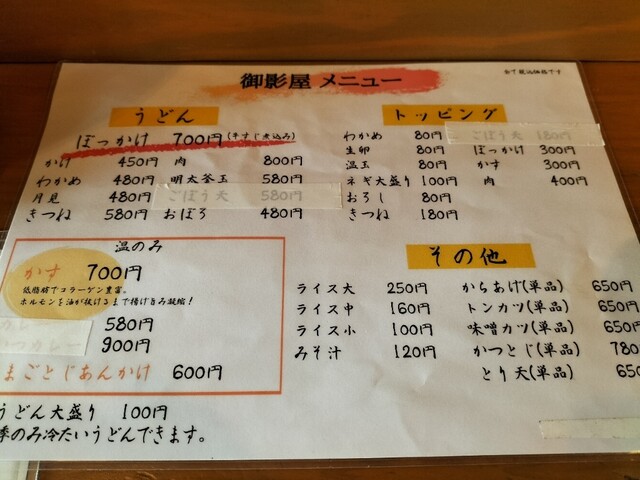 御影屋 メニュー
全て税込価格です
うどん
ぼっかけ 700円(牛すじ煮込み)
かけ 450円 肉 800円
わかめ 480円 明太釜玉 580円
月見 480円 ごぼう天 580円
きつね 580円 おぼろ 480円
温のみ
かす 700円
低脂肪でコラーゲン豊富。
ホルモンを油が抜けるまで揚げ旨み凝縮!
カレー 580円
かつカレー 900円
まごとじあんかけ 600円
うどん大盛り 100円
季のみ冷たいうどんできます。
トッピング
わかめ 80円 ごぼう天 180円
生卵 80円 ぼっかけ 300円
温玉 80円 かす 300円
ネギ大盛り 100円 肉 400円
おろし 80円
きつね 180円
その他
ライス大 250円 からあげ(単品) 650円
ライス中 160円 トンカツ(単品) 650円
ライス小 100円 味噌カツ(単品) 650円
みそ汁 120円 かつとじ(単品) 780
とり天(単品) 650